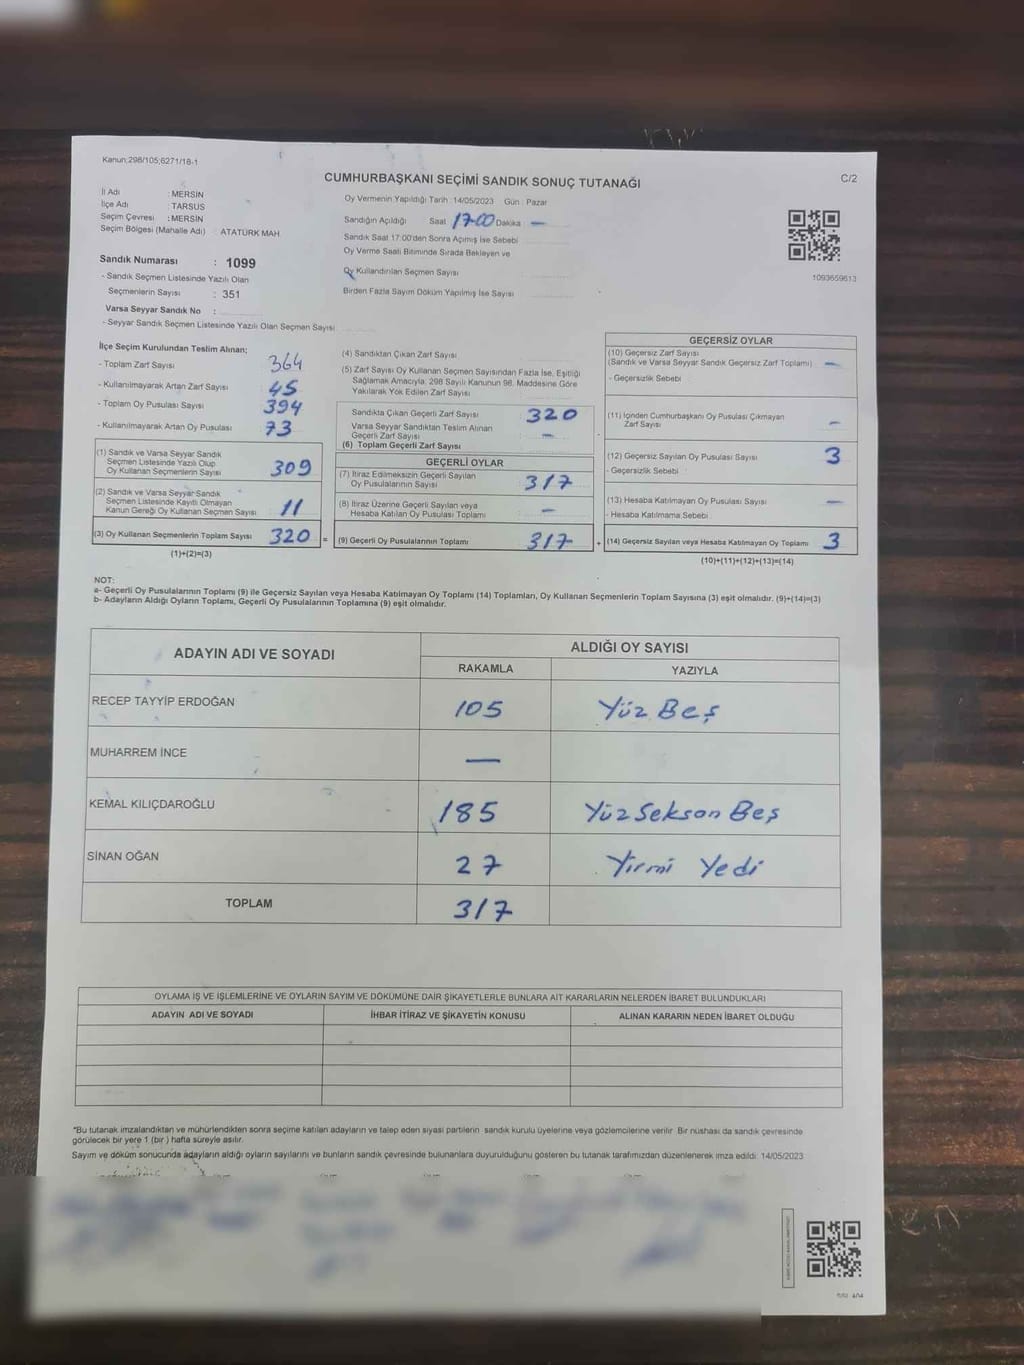 Kanun;298/105;6271/18-1
CUMHURBAŞKANI SEÇİMİ SANDIK SONUÇ TUTANAĞI
C/2
İl Adı : MERSİN
İlçe Adı : TARSUS
Seçim Çevresi : MERSİN
Seçim Bölgesi (Mahalle Adı) : ATATÜRK MAH
Sandık Numarası : 1099
- Sandık Seçmen Listesinde Yazılı Olan
Seçmenlerin Sayısı : 351
Varsa Seyyar Sandık No :
- Seyyar Sandık Seçmen Listesinde Yazılı Olan Seçmen Sayısı
Oy Vermenin Yapıldığı Tarih 14/05/2023 Gün : Pazar
Sandığın Açıldığı Saat 17:00 Dakika —
Sandık Saat 17:00'den Sonra Açımış İse Sebebi
Oy Verme Saati Bitiminde Sırada Bekleyen ve
Oy Kullandırılan Seçmen Sayısı
Birden Fazla Sayım Döküm Yapılmış İse Sayısı
1093659613
İlçe Seçim Kurulundan Teslim Alınan;
- Toplam Zarf Sayısı 364
- Kullanılmayarak Artan Zarf Sayısı 45
- Toplam Oy Pusulası Sayısı 394
- Kullanılmayarak Artan Oy Pusulası 73
(1) Sandık ve Varsa Seyyar Sandık
Seçmen Listesinde Yazılı Olup
Oy Kullanan Seçmenlerin Sayısı 309
(2) Sandık ve Varsa Seyyar Sandık
Seçmen Listesinde Kayıtlı Olmayan
Kanun Gereği Oy Kullanan Seçmen Sayısı 11
(3) Oy Kullanan Seçmenlerin Toplam Sayısı 320 =
(1)+(2)=(3)
(4) Sandıktan Çıkan Zarf Sayısı
(5) Zarf Sayısı Oy Kullanan Seçmen Sayısından Fazla İse, Eşitliği
Sağlamak Amacıyla, 298 Sayılı Kanunun 98. Maddesine Göre
Yakılarak Yok Edilen Zarf Sayısı
Sandıkta Çıkan Geçerli Zarf Sayısı 320
Varsa Seyyar Sandıktan Teslim Alınan
Geçerli Zarf Sayısı —
(6) Toplam Geçerli Zarf Sayısı
GEÇERLİ OYLAR
(7) İtiraz Edilmeksizin Geçerli Sayılan
Oy Pusulalarının Sayısı 317
(8) İtiraz Üzerine Geçerli Sayılan veya
Hesaba Katılan Oy Pusulası Toplamı —
(9) Geçerli Oy Pusulalarının Toplamı 317 +
GEÇERSİZ OYLAR
(10) Geçersiz Zarf Sayısı
(Sandık ve Varsa Seyyar Sandık Geçersiz Zarf Toplamı) —
- Geçersizlik Sebebi
(11) İçinden Cumhurbaşkanı Oy Pusulası Çıkmayan
Zarf Sayısı —
(12) Geçersiz Sayılan Oy Pusulası Sayısı 3
- Geçersizlik Sebebi
(13) Hesaba Katılmayan Oy Pusulası Sayısı —
- Hesaba Katılmama Sebebi
(14) Geçersiz Sayılan veya Hesaba Katılmayan Oy Toplamı 3
(10)+(11)+(12)+(13)=(14)
NOT:
a- Geçerli Oy Pusulalarının Toplamı (9) ile Geçersiz Sayılan veya Hesaba Katılmayan Oy Toplamı (14) Toplamları, Oy Kullanan Seçmenlerin Toplam Sayısına (3) eşit olmalıdır. (9)+(14)=(3)
b- Adayların Aldığı Oyların Toplamı, Geçerli Oy Pusulalarının Toplamına (9) eşit olmalıdır.
ADAYIN ADI VE SOYADI
ALDIĞI OY SAYISI
RAKAMLA YAZIYLA
RECEP TAYYİP ERDOĞAN 105 Yüz Beş
MUHARREM İNCE —
KEMAL KILIÇDAROĞLU 185 Yüz Sekson Beş
SİNAN OĞAN 27 Yirmi Yedi
TOPLAM 317
OYLAMA İŞ VE İŞLEMLERİNE VE OYLARIN SAYIM VE DÖKÜMÜNE DAİR ŞİKAYETLERLE BUNLARA AİT KARARLARIN NELERDEN İBARET BULUNDUKLARI
ADAYIN ADI VE SOYADI İHBAR İTİRAZ VE ŞİKAYETİN KONUSU ALINAN KARARIN NEDEN İBARET OLDUĞU
*Bu tutanak imzalandıktan ve mühürlendikten sonra seçime katılan adayların ve talep eden siyasi partilerin sandık kurulu üyelerine veya gözlemcilerine verilir. Bir nüshası da sandık çevresinde
görülecek bir yere 1 (bir) hafta süreyle asılır.
Sayım ve döküm sonucunda adayların aldığı oyların sayılarını ve bunların sandık çevresinde bulunanlara duyurulduğunu gösteren bu tutanak tarafımızdan düzenlenerek imza edildi. 14/05/2023